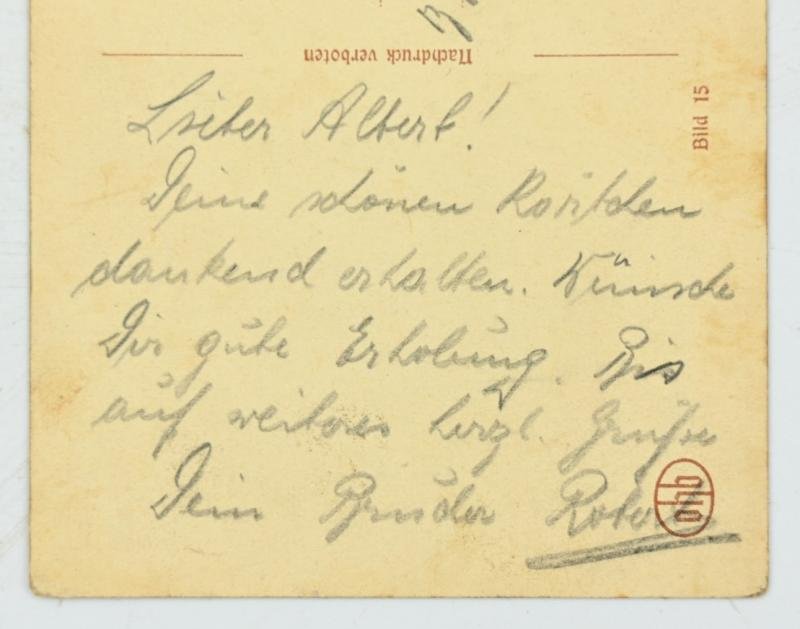 Nachdruck verboten
Bild 15
Lieber Albert!
Deine schönen Karten
dankend erhalten. Wünsche
Dir gute Erholung. Bis
auf weiteres herzl. Grüße
Dein Bruder Robert